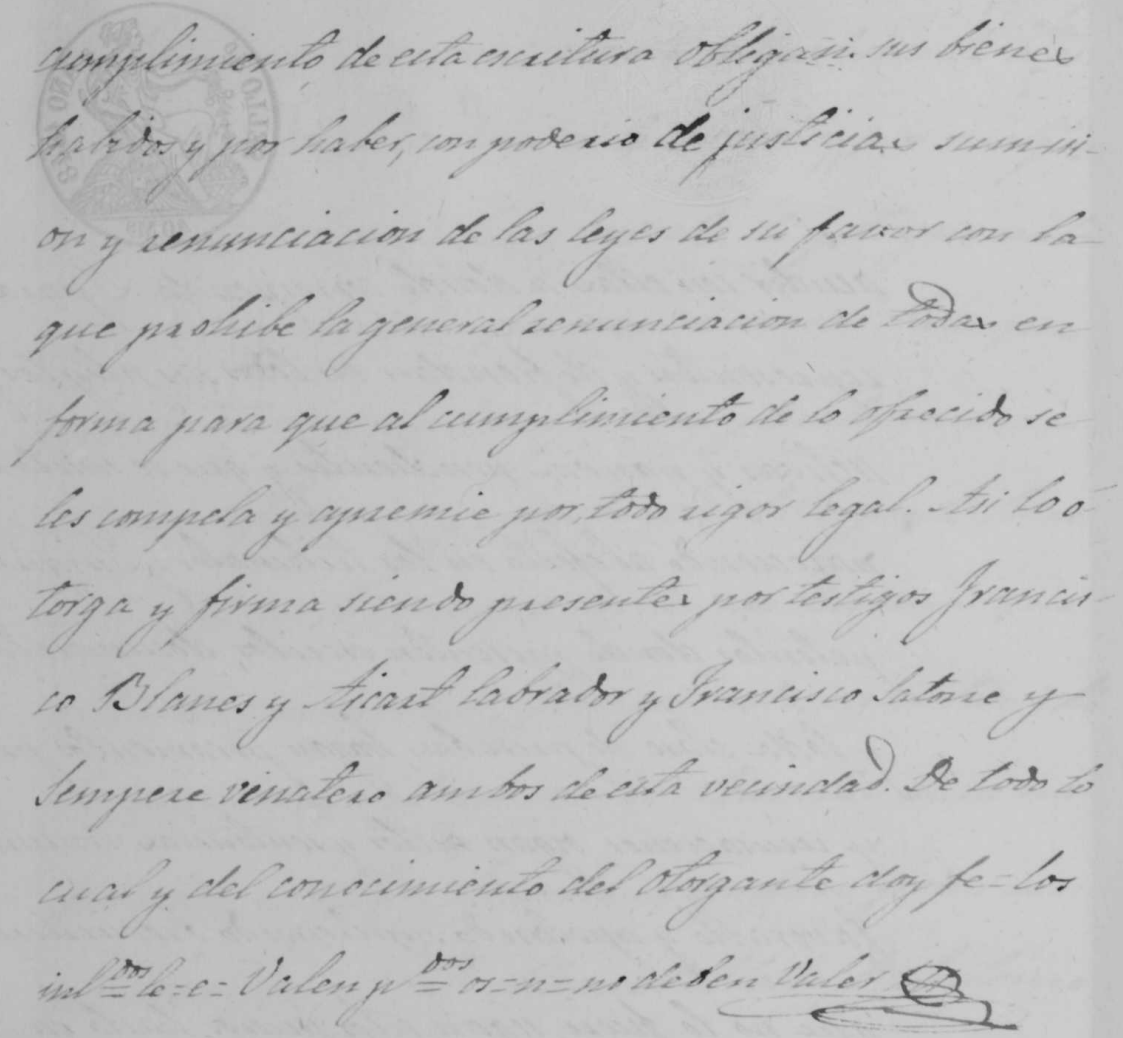 cumplimiento de esta escritura obligan sus bienes
habidos y por haber, con poderio de justicias sumisi-
on y renunciacion de las leyes de su favor con la
que prohibe la general renunciacion de todas en
forma para que al cumplimiento de lo ofrecido se
les compela y apremie por todo rigor legal. Asi lo o-
torga y firma siendo presentes por testigos Francis-
co Blanes y Aicart labrador y Francisco Satorre y
Sempere vinatero ambos de esta vecindad. De todo lo
cual y del conocimiento del otorgante doy fe = los
inl.dos = le = e = Valen p.dos = os = n = no deben Valer